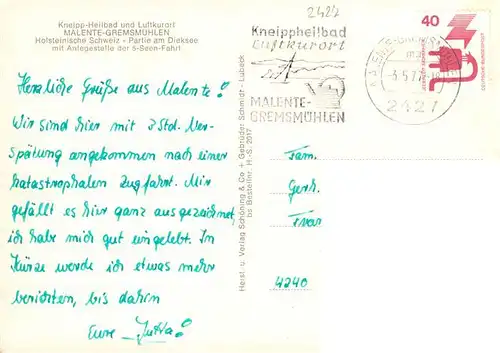 Kneipp-Heilbad und Luftkurort
MALENTE-GREMSMÜHLEN
Holsteinische Schweiz - Partie am Dieksee
mit Anlegestelle der 5-Seen-Fahrt
Herzliche Grüße aus Malente!
Wir sind hier mit 2 Std. Ver-
spätung angekommen nach einer
katastrophalen Zugfahrt. Mir
gefällt es hier ganz ausgezeichnet,
ich habe mich gut eingelebt. In
Kürze werde ich etwas mehr
berichten, bis dahin
Eure Jutta!
Herst. u. Verlag Schöning & Co + Gebrüder Schmidt - Lübeck
bs Bestellnr. H.-S. 2017
2427
Kneippheilbad
Luftkurort
MALENTE-
GREMSMÜHLEN
2427
40
DEUTSCHE BUNDESPOST
Fam.
Gerh.
4240